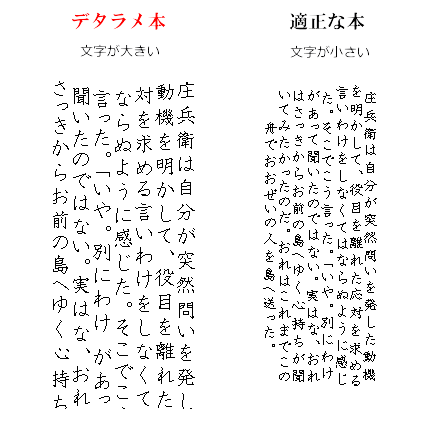 デタラメ本
文字が大きい
庄兵衛は自分が突然問いを発し
動機を明かして、役目を離れた
対を求める言いわけをしなくて
ならぬように感じた。そこでこ
言った。「いや。別にわけ があっ
聞いたのではない。実はな、おれ
さっきからお前の島へゆく心持ち
適正な本
文字が小さい
庄兵衛は自分が突然問いを発した動機
を明かして、役目を離れた応対を求める
言いわけをしなくてはならぬように感じ
た。そこでこう言った。「いや。別にわけ
があって聞いたのではない。実はな、おれ
はさっきからお前の島へゆく心持ちが聞
いてみたかったのだ。おれはこれまでこの
舟でおおぜいの人を島へ送った。